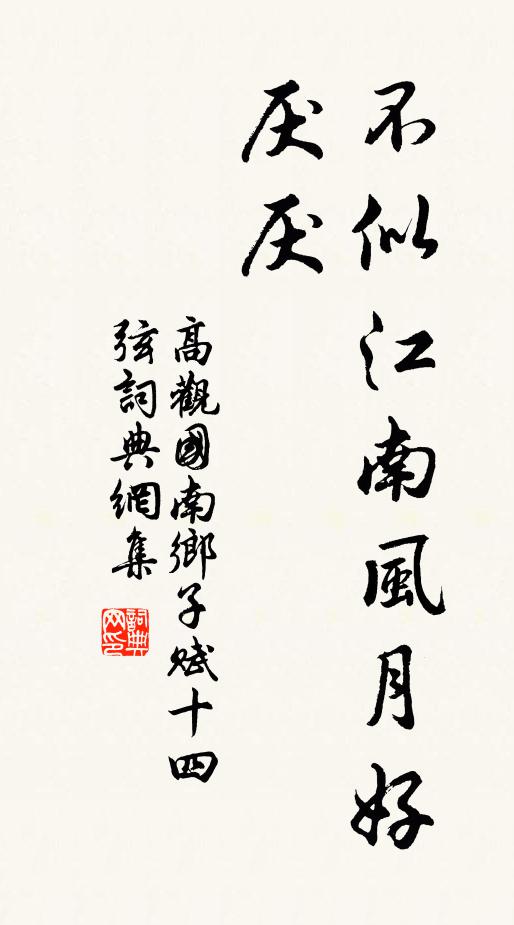 不似江南風月好
厌厌
高觀國南鄉子賦十四
弦詞典網集
詞典
网印